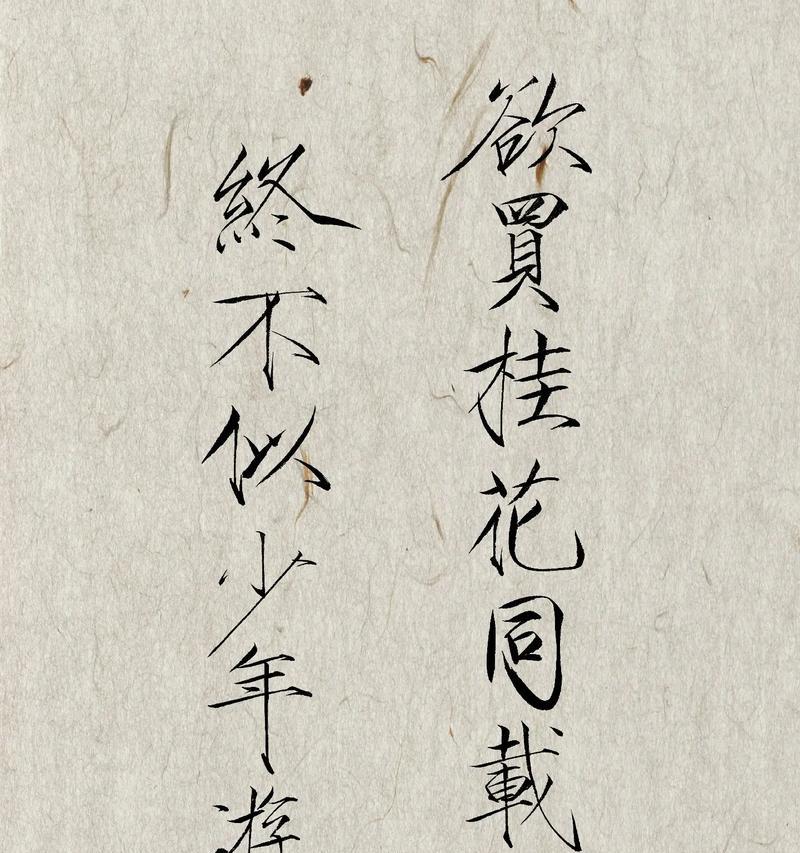 欲買桂花同載
終不似少年游